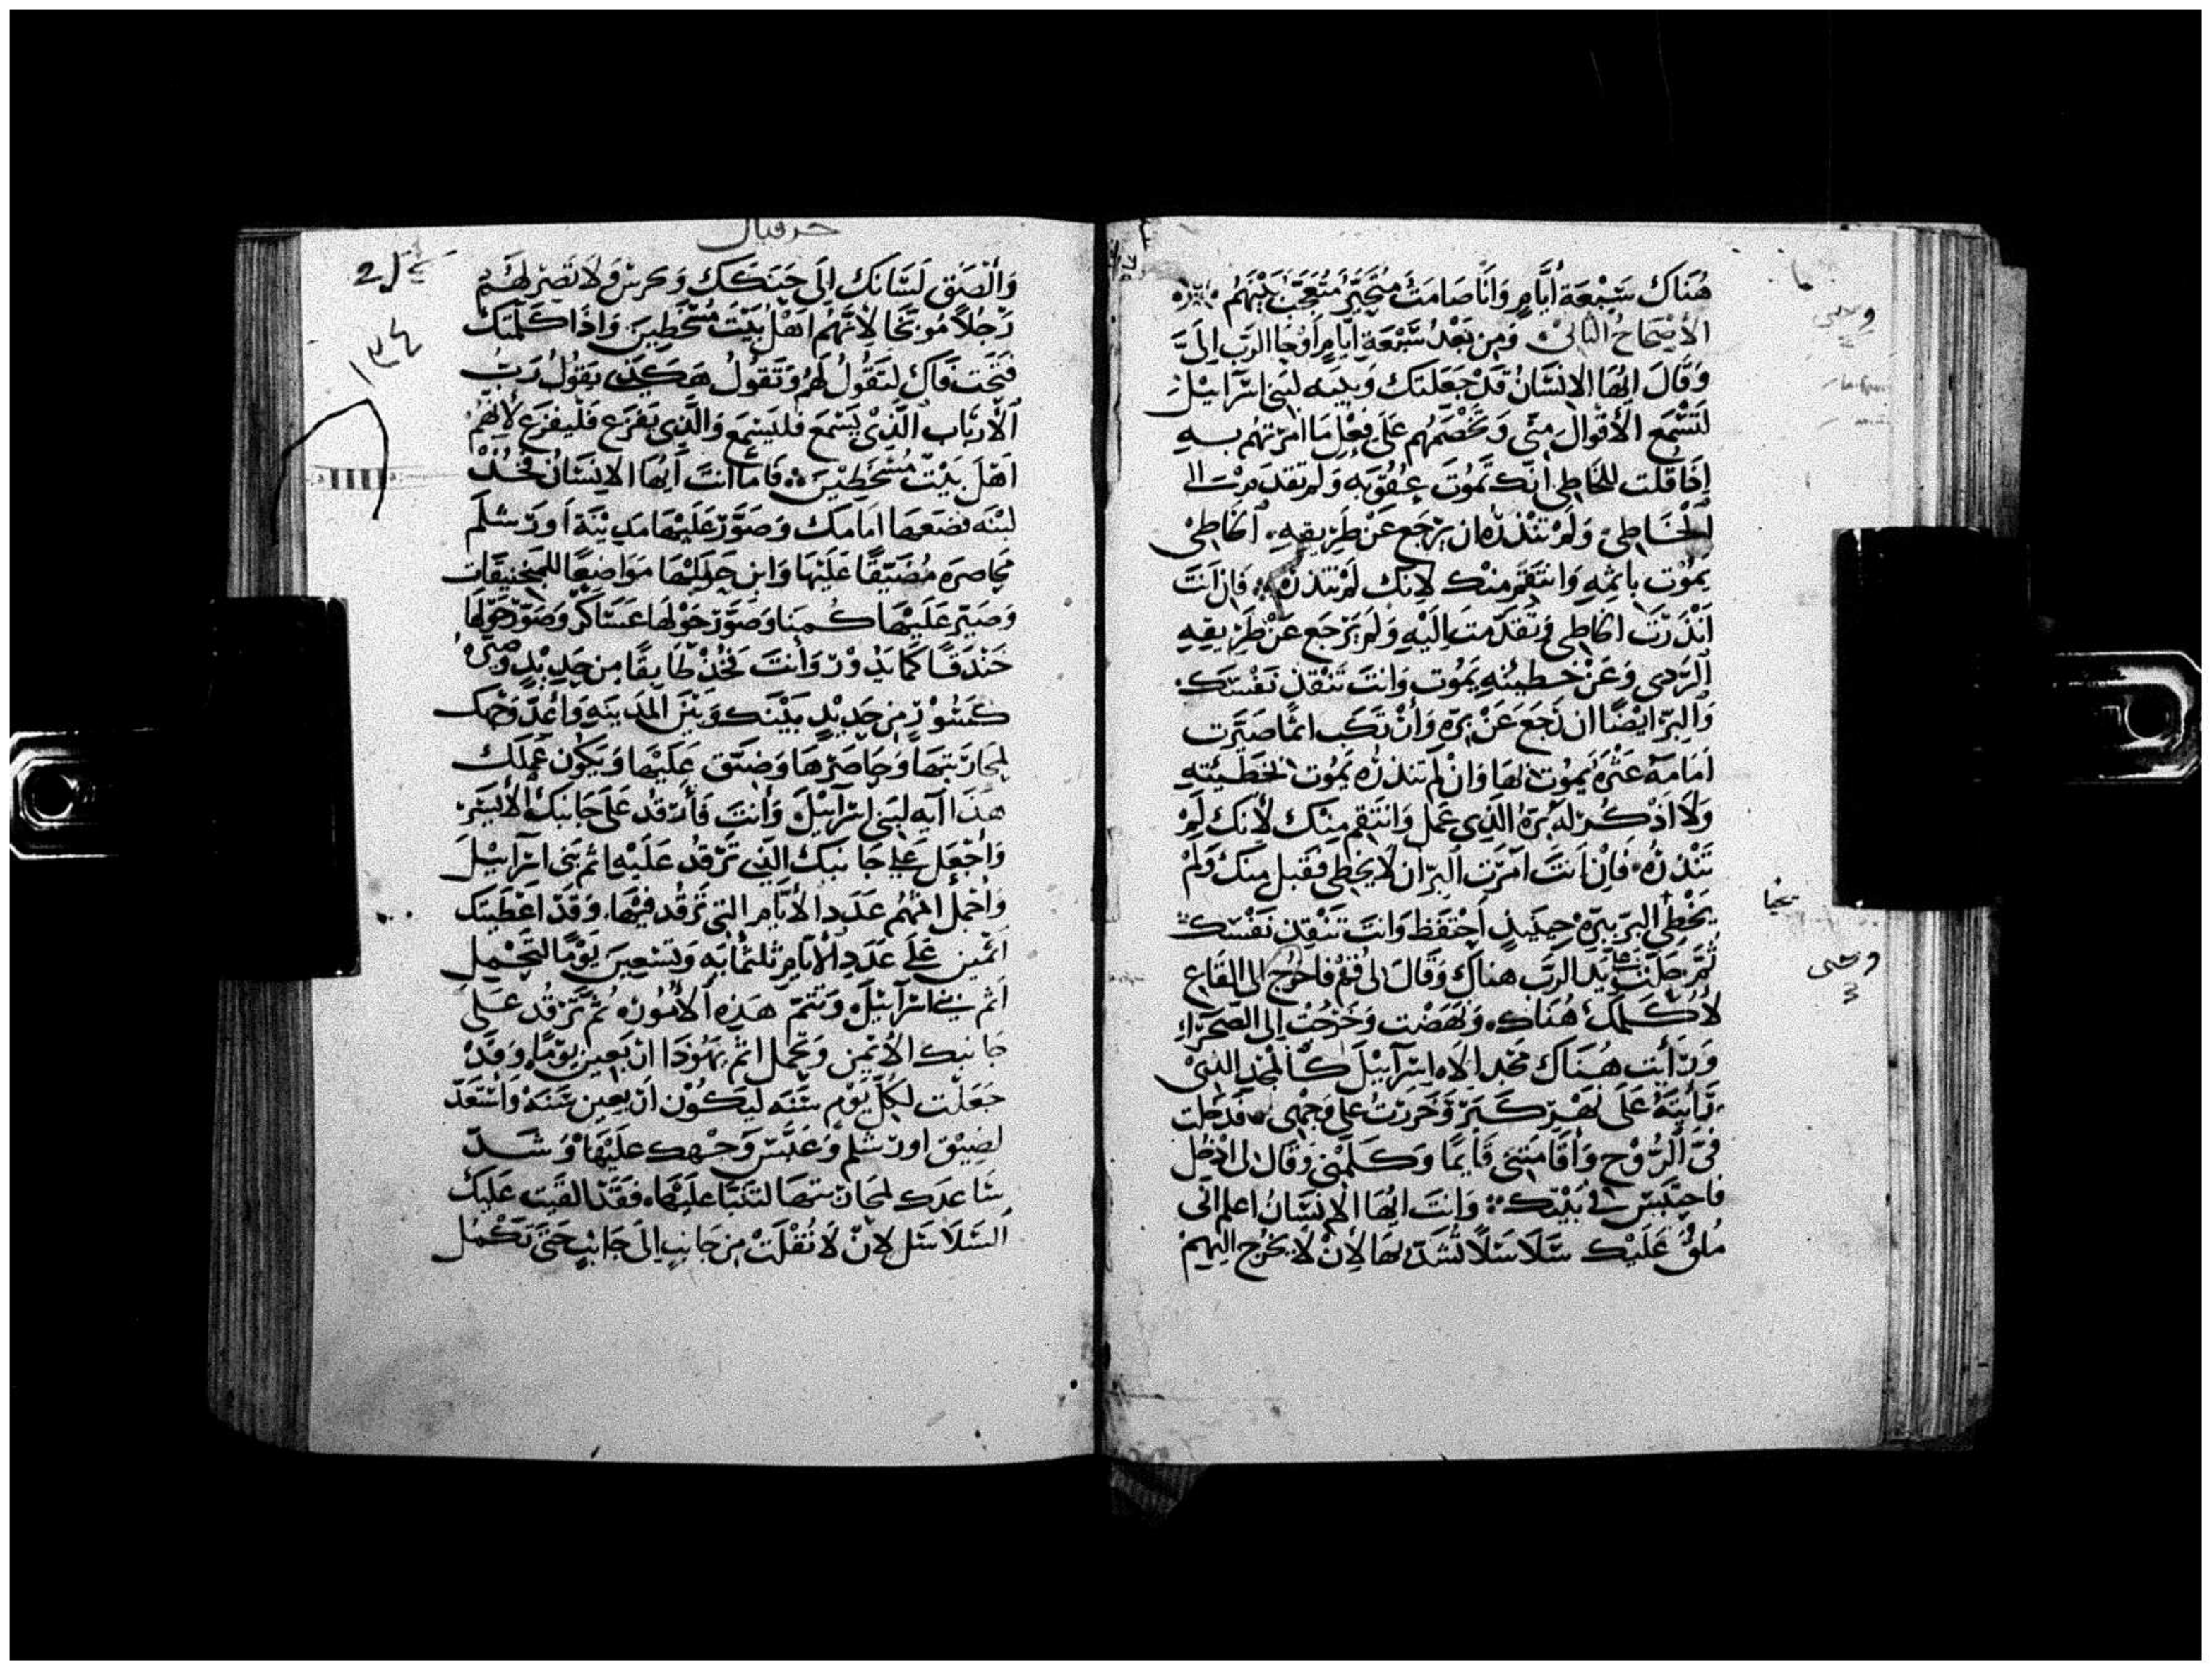 هُنَاكَ سَبْعَةُ أَيَّامٍ وَأَنَا صَامَتُ مُتَحَيِّرُ مُتَعَجِّبُ بَيْنَهُمْ
الأصْحَاحُ الثالث وَمِن بَعْدُ سَبْعَةِ أيَامٍ أَوْحَا الرَب إِلَيَّ
وَقَالَ ايُّهَا الإِنْسَانُ قَدْ جَعَلتَك وَبِيَه لبَني اسْرَآئيل
لتَسْمَع الأَقْوَال مِنّي وَتَخْصَمُهم عَلَى فِعْلِ مَا امَرْتهُم بِهِ
إِذَا قُلت للخَاطِي انَك تَمُوتَ عِقُوبَه وَلم تقدَمرت الى
الْخَاطِئ وَلَمْ تنْذرْهُ ان يرْجَع عَنْ طَرِيقِهِ. الخاطِي
يَمُوت بإثمِهِ وَانتَقم منْك لانِك لَمْ تنذرْه فَإن انتَ
انْذَرْتَ الخاطِي وتقَدّمت إلَيْهِ وَلَم يَرْجَع عَنْ طَرِيقِهِ
الرَدِي وَعَنْ خَطِيئتِهِ يَمُوت وَانتَ تَنْقِذ نَفْسَك
وَالبِرّ ايْضًا ان رَجَعَ عَنْ بِرّه وَانْ تَكَب اثمًا صَيَّرت
امَامَهُ عَثْرَهْ يَموُت بهَا وَانْ لَم تنذرْه يَمُوت بخَطيئتِهِ
وَلاَ اذْكُر له بِرّهُ الذِي عَمل وَانتَقِم مِنْك لأنَك لَم
تَنْذُرْهُ. فَإنْ انتَ امَرْت البِرّ ان لاَ يخطي فقَبل مِنك وَلَم
يَخْطِي البرّ ببِرّه حِينَيذٍ احْتفَظ وَانتَ تنْقِذ نَفْسَك
ثُمّ حَلّت عَلَيَّ يَد الرَب هناك وَقَالَ لي قُمْ فاخرُج الى القاع
لأُكَلّمَك هُنَاك. وَنهَضْت وَخرَجْت إلى الصَحَرَاء
وَرَأيت هُنَاك مَجْد الاه اسْرَآئيل كَالمَجْد الذِي
رَايتهُ عَلَى نَهْر كَبَر وَخَررَتُ عَلى وَجْهِي. فدَخلت
فيَّ الرُوْح وَأقَامَتني قَايمًا وَكَلّمَتْني وَقَال لي ادْخُل
فاحتبس في بَيْتِك. وَانتَ ايُّهَا الإنسَانُ اعلم انّي
مُلْقُ عَلَيْك سَلاسَلًا تُشَدّ بهَا لِإنْ لاَ يَخْرج اليهِمْ
وحى
نخيا
وحى
حزقيال
وَالْصَق لسَانَك إلَى حَنَكَك وَتخرس وَلاَ تَصِرْ لهُمْ
رَجُلاً مُوبّخًا لأنَّهُم اهْلُ بَيْت مُسْخِطِين وَإذَا كَلّمْتَك
فتَحْت فَاك لتَقُولُ لهُمْ وَتَقُولُ هَكَذَي يَقُولُ رَبّ
الأرْبَاب الَّذِي يَسْمَع فَليَسْمَع وَالّذِي يَفزَع فَليفزَع لأنهُم
اهْلَ بَيْت مُسْخِطِيْن. فَأمّا انتَ ايُّهَا الانسَانُ فخُذ
لبْنَه فضَعهَا امَامَك وَصَوّر عَلَيْهَا مَديْنَة أورشلَم
مَحاصرَه مُضَيّقًا عَلَيْهَا وَابْنِ حَوَليْهَا مَوَاضِعًا للمَنجنيقات
وَصَيّر عَلَيْهَا كُمَنَا وَصَوّر حَوْلهَا عَسَاكر وَصَوّر حَوْلهَا
خَنْدَقًا كمَا يَدُوْر وَانتَ فخُذ طَابقًا مِن حَديْدٍ وَصَيّره
كَسُوْر مِن حَديْدٍ بَيْنَك وَبَيْنَ المَديَنه وَاعْدّ وَجْهك
لمحَارَبتِهَا وَحَاصرْهَا وَضَيّق عَلَيْهَا وَيَكُون عَمَلك
هَذَا آيه لبَني اسْرَآئيْل وَأنتَ فَأرْقُد عَلَى جَانبك الأيْسَر
وَاجْعَل عَلَى جَانبَك الذِي تَرْقُد عَلَيْه اثم بَني اسْرَآئيْل
وَاحْمل اثمهُم عَدَد الأيَّام التِي تَرْقُد فيْهَا. وَقَدْ اعْطَيتك
اثمَين عَلَى عَدَدِ الأيَام ثلثمَايَه وَتِسْعِين يَوْمًا لتَحْمل
اثم بَني اسْرَآئيْل وَتَتمّ هَذِه الأُمُوره ثُم تَرْقُد عَلَى
جَانبك الأيْمَن وَتحْمل اثم يَهُوْذَا ارْبَعِين يَومًا. وَقَدْ
جَعَلت لكُل يَوْم سَنَه ليَكُون ارْبعِين سَنَهْ وَاسْتَعدّ
لضِيْق اورشلم وَعَبّس وَجْهك عَلَيْهَا وَشَدّ
سَاعِدَك لمحَارَبتهَا لتتَنبَا عَليْهَا. فقَدْ القَيت عَلَيْك
السَلاَسَل لانْ لاَ تُفْلَت مِن جَانبٍ الَى جَانبٍ حَتّى تَكْمُل
١٣٤